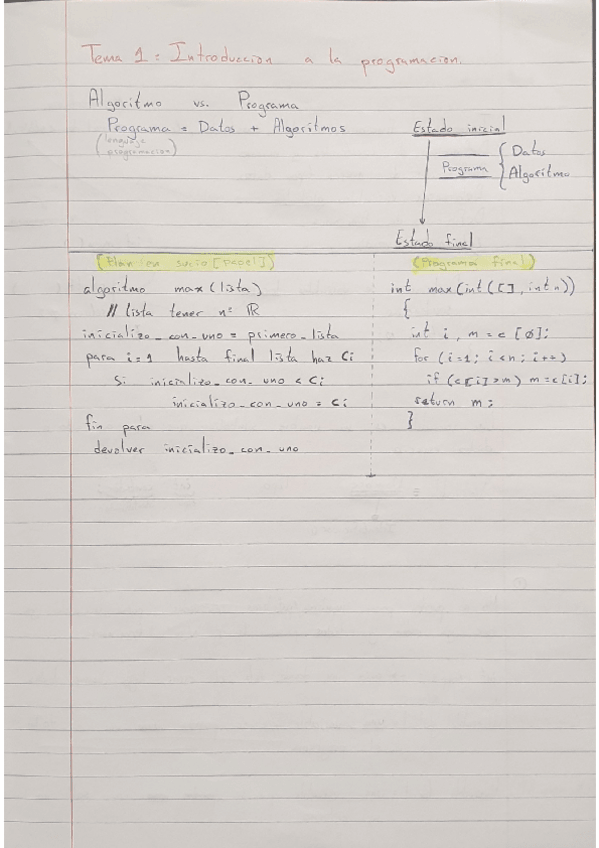 Tema 1: Introduccion a la programacion.
Algoritmo vs. Programa
Programa = Datos + Algoritmos
(lenguaje
programacion)
Estado inicial
Programa { Datos
Algoritmo
Estado final
(Plan en sucio [papel])
algoritmo max (lista)
// lista tener nº ℝ
inicializo_con_uno = primero_lista
para i=1 hasta final lista haz Ci
Si inicializo_con_uno < Ci
inicializo_con_uno = Ci
fin para
devolver inicializo_con_uno
(Programa final)
int max(int c[], int n))
{
int i, m = c [Ø];
for (i=1; i<n; i++)
if (c[i]>m) m=c[i];
return m;
}